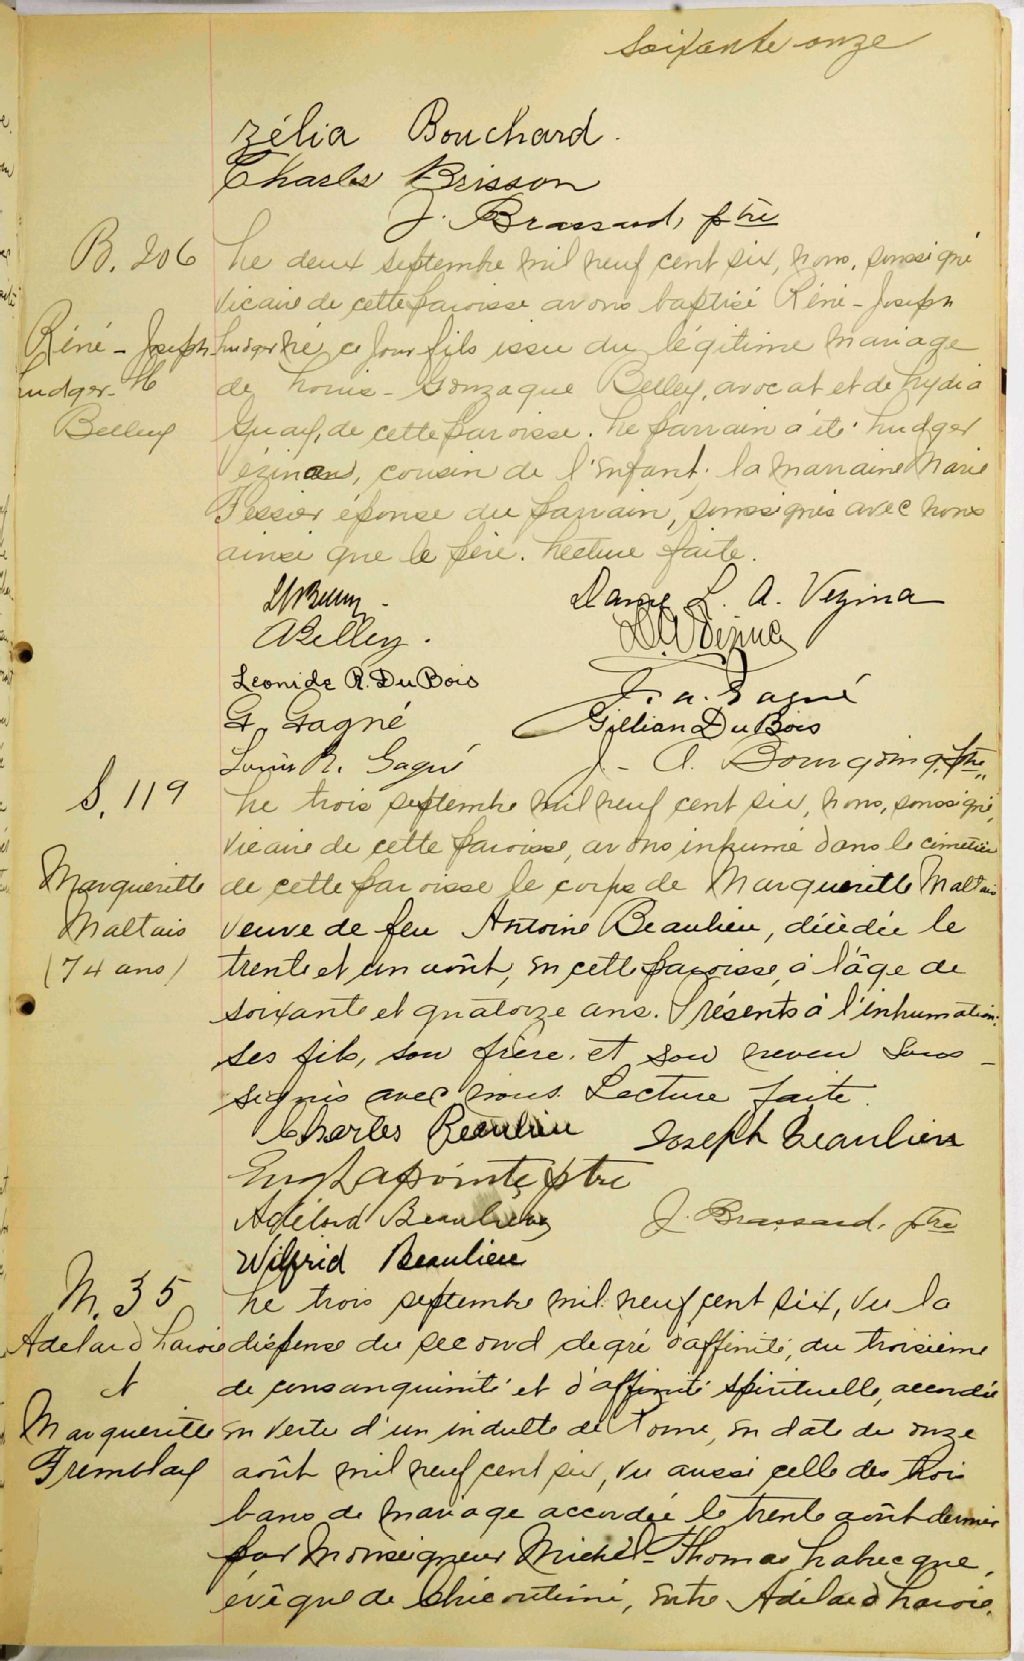 soixante onze
Zélia Bouchard.
Charles Brisson
J. Brassard, ptre
B. 206
Réné-Joseph
Ludger
Belley
Le deux septembre mil neuf cent six, nous, soussigné
vicaire de cette paroisse avons baptisé Réné-Joseph
Ludger né ce jour fils issu du légitime mariage
de Louis-Gonzague Belley, avocat et de Lydia
Guay, de cette paroisse. Le parrain a été Ludger
Vézina, cousin de l'enfant; la marraine Marie
Tessier épouse du parrain, soussignés avec nous
ainsi que le père. Lecture faite.
Dame L. A. Vezina
ABelley.
L. A. Vezina
Leonide R. DuBois
J. A. Gagné
G. Gagné
Gillian DuBois
Louis R. Gagné
J. A. Bourgoing, ptre
S. 119
Marguerite
Maltais
(74 ans)
Le trois septembre mil neuf cent six, nous, soussigné,
vicaire de cette paroisse, avons inhumé dans le cimetière
de cette paroisse le corps de Marguerite Maltais
veuve de feu Antoine Beaulieu, décédée le
trente et un août, en cette paroisse, à l'âge de
soixante et quatorze ans. Présents à l'inhumation:
ses fils, son frère. et son neveu sous-
signés avec nous. Lecture faite.
Charles Beaulieu Joseph Beaulieu
Eug Lapointe, ptre
Adélard Beaulieu J. Brassard, ptre
Wilfrid Beaulieu
M. 35
Adelard Lavoie
et
Marguerite
Tremblay
Le trois septembre mil neuf cent six, vu la
dispense du second degré d'affinité, du troisième
de consanguinité et d'affinité spirituelle, accordée
en vertu d'un indulte de Rome, en date du onze
août mil neuf cent six, vu aussi celle des trois
bans de mariage accordée le trente août dernier
par Monseigneur Michel-Thomas Labrecque,
évêque de Chicoutimi, entre Adélard Lavoie,